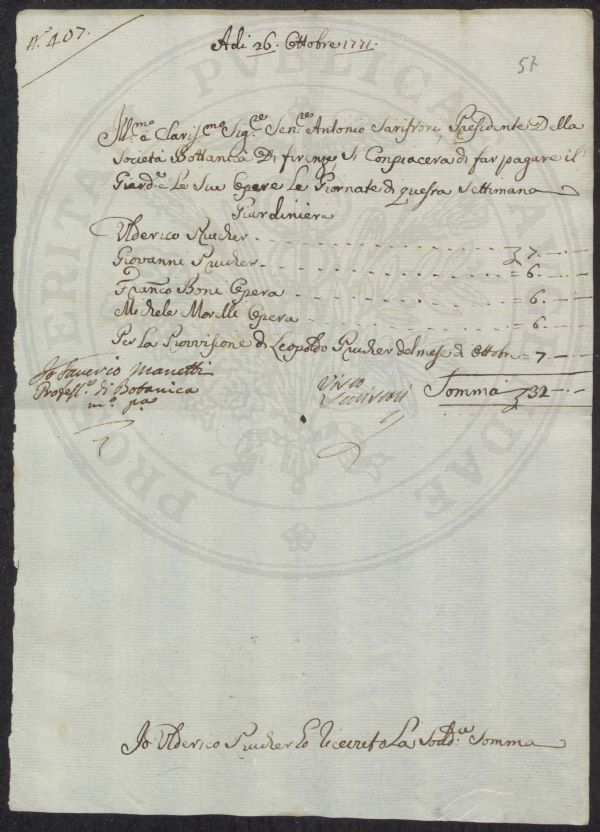 N.° 407.
Adi: 26. Ottobre 1771.
57
Ill:mo e Clariss:mo Sig:re Sen:re Antonio Serristori, Presidente Della
Società Bottanica Di firenze Si Compiacerà di far pagare il
Giard:e e Le Sue Opere Le Giornate di questa Settimana
Giardiniere
Ulderico Prucher - - - 7. - -
Giovanni Prucher - - - = 6. - -
Franco Boni Opera - - - = 6. - -
Michele Morelli Opera - - - = 6. - -
Per La Provvisione di Leopoldo Prucher del mese di Ottobre = 7 - -
Io Saverio Manetti
Profess:e di Botanica
m:o p:a
Visto
Somma 32 - -
Io Ulderico Prucher ho ricevuto La Sodd:a Somma
PRO VERITA PVBLICA